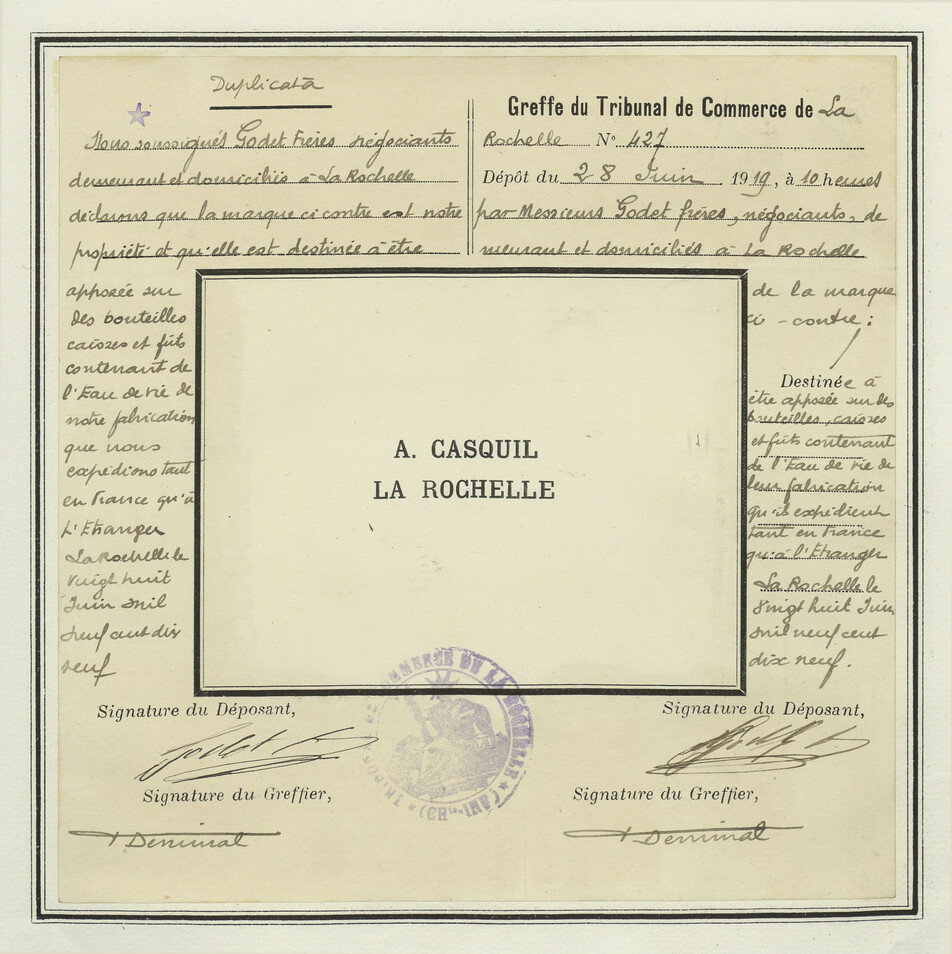 Duplicata
Nous soussignés Godet Frères négociants
demeurant et domiciliés à La Rochelle
déclarons que la marque ci contre est notre
propriété et qu'elle est destinée à être
apposée sur
des bouteilles
caisses et fûts
contenant de
l'Eau de vie de
notre fabrication
que nous
expédions tant
en France qu'à
L'Etranger
La Rochelle le
vingt huit
Juin mil
neuf cent dix
neuf
Greffe du Tribunal de Commerce de La
Rochelle N° 427
Dépôt du 28 Juin 1919, à 10 heures
par Messieurs Godet frères, négociants, de
meurant et domiciliés à La Rochelle
de la marque
ci-contre :
Destinée à
être apposée sur des
bouteilles, caisses
et fûts contenant
de l'Eau de vie de
leur fabrication
qu'ils expédient
tant en France
qu'à l'Etranger
La Rochelle le
Vingt huit Juin
mil neuf cent
dix neuf.
A. CASQUIL
LA ROCHELLE
Signature du Déposant,
Signature du Déposant,
TRIBUNAL DE COMMERCE DE LA ROCHELLE
Signature du Greffier,
Signature du Greffier,